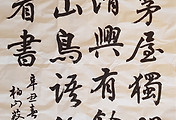 茅屋獨
清興有餘
山鳥語
看書
辛丑春
柏山